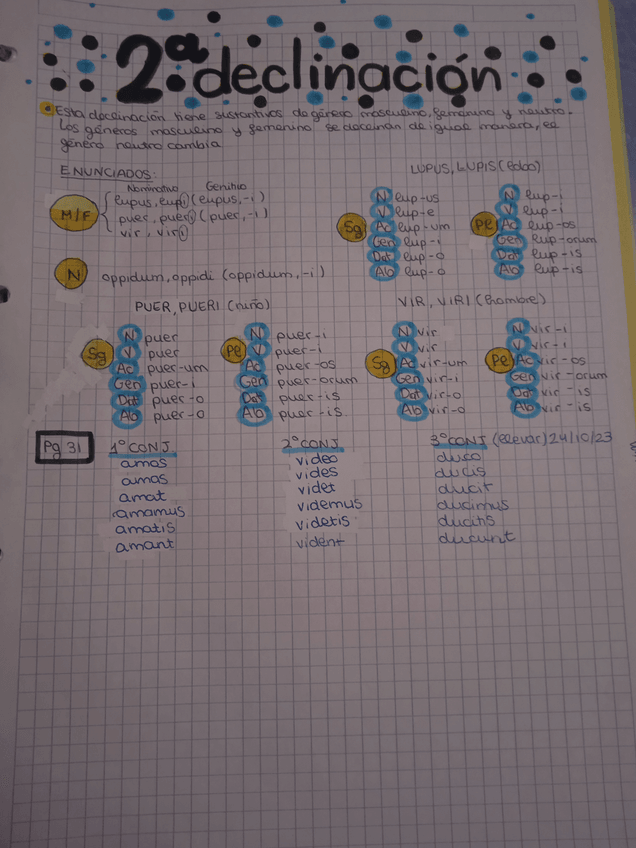 2ª declinación
Esta declinación tiene sustantivos de género masculino, femenino y neutro.
Los géneros masculino y femenino se declinan de igual manera, el
género neutro cambia
ENUNCIADOS:
Nominativo Genitivo
M/F
lupus, lupi (lupus, -i)
puer, pueri (puer, -i)
vir, viri
N oppidum, oppidi (oppidum, -i)
LUPUS, LUPIS (lobo)
Sg
N lup-us
V lup-e
Ac lup-um
Gen lup-i
Dat lup-o
Alo lup-o
Pl
N lup-i
V lup-i
Ac lup-os
Gen lup-orum
Dat lup-is
Alo lup-is
PUER, PUERI (niño)
Sg
N puer
V puer
Ac puer-um
Gen puer-i
Dat puer-o
Alo puer-o
Pl
N puer-i
V puer-i
Ac puer-os
Gen puer-orum
Dat puer-is
Alo puer-is
VIR, VIRI (hombre)
Sg
N vir
V vir
Ac vir-um
Gen vir-i
Dat vir-o
Alo vir-o
Pl
N vir-i
V vir-i
Ac vir-os
Gen vir-orum
Dat vir-is
Alo vir-is
Pg 31
1º CONJ.
amos
amas
amat
amamus
amatis
amant
2º CONJ
video
vides
videt
videmus
videtis
vident
3º CONJ (llevar) 24/10/23
duco
ducis
ducit
ducimus
ducitis
ducunt